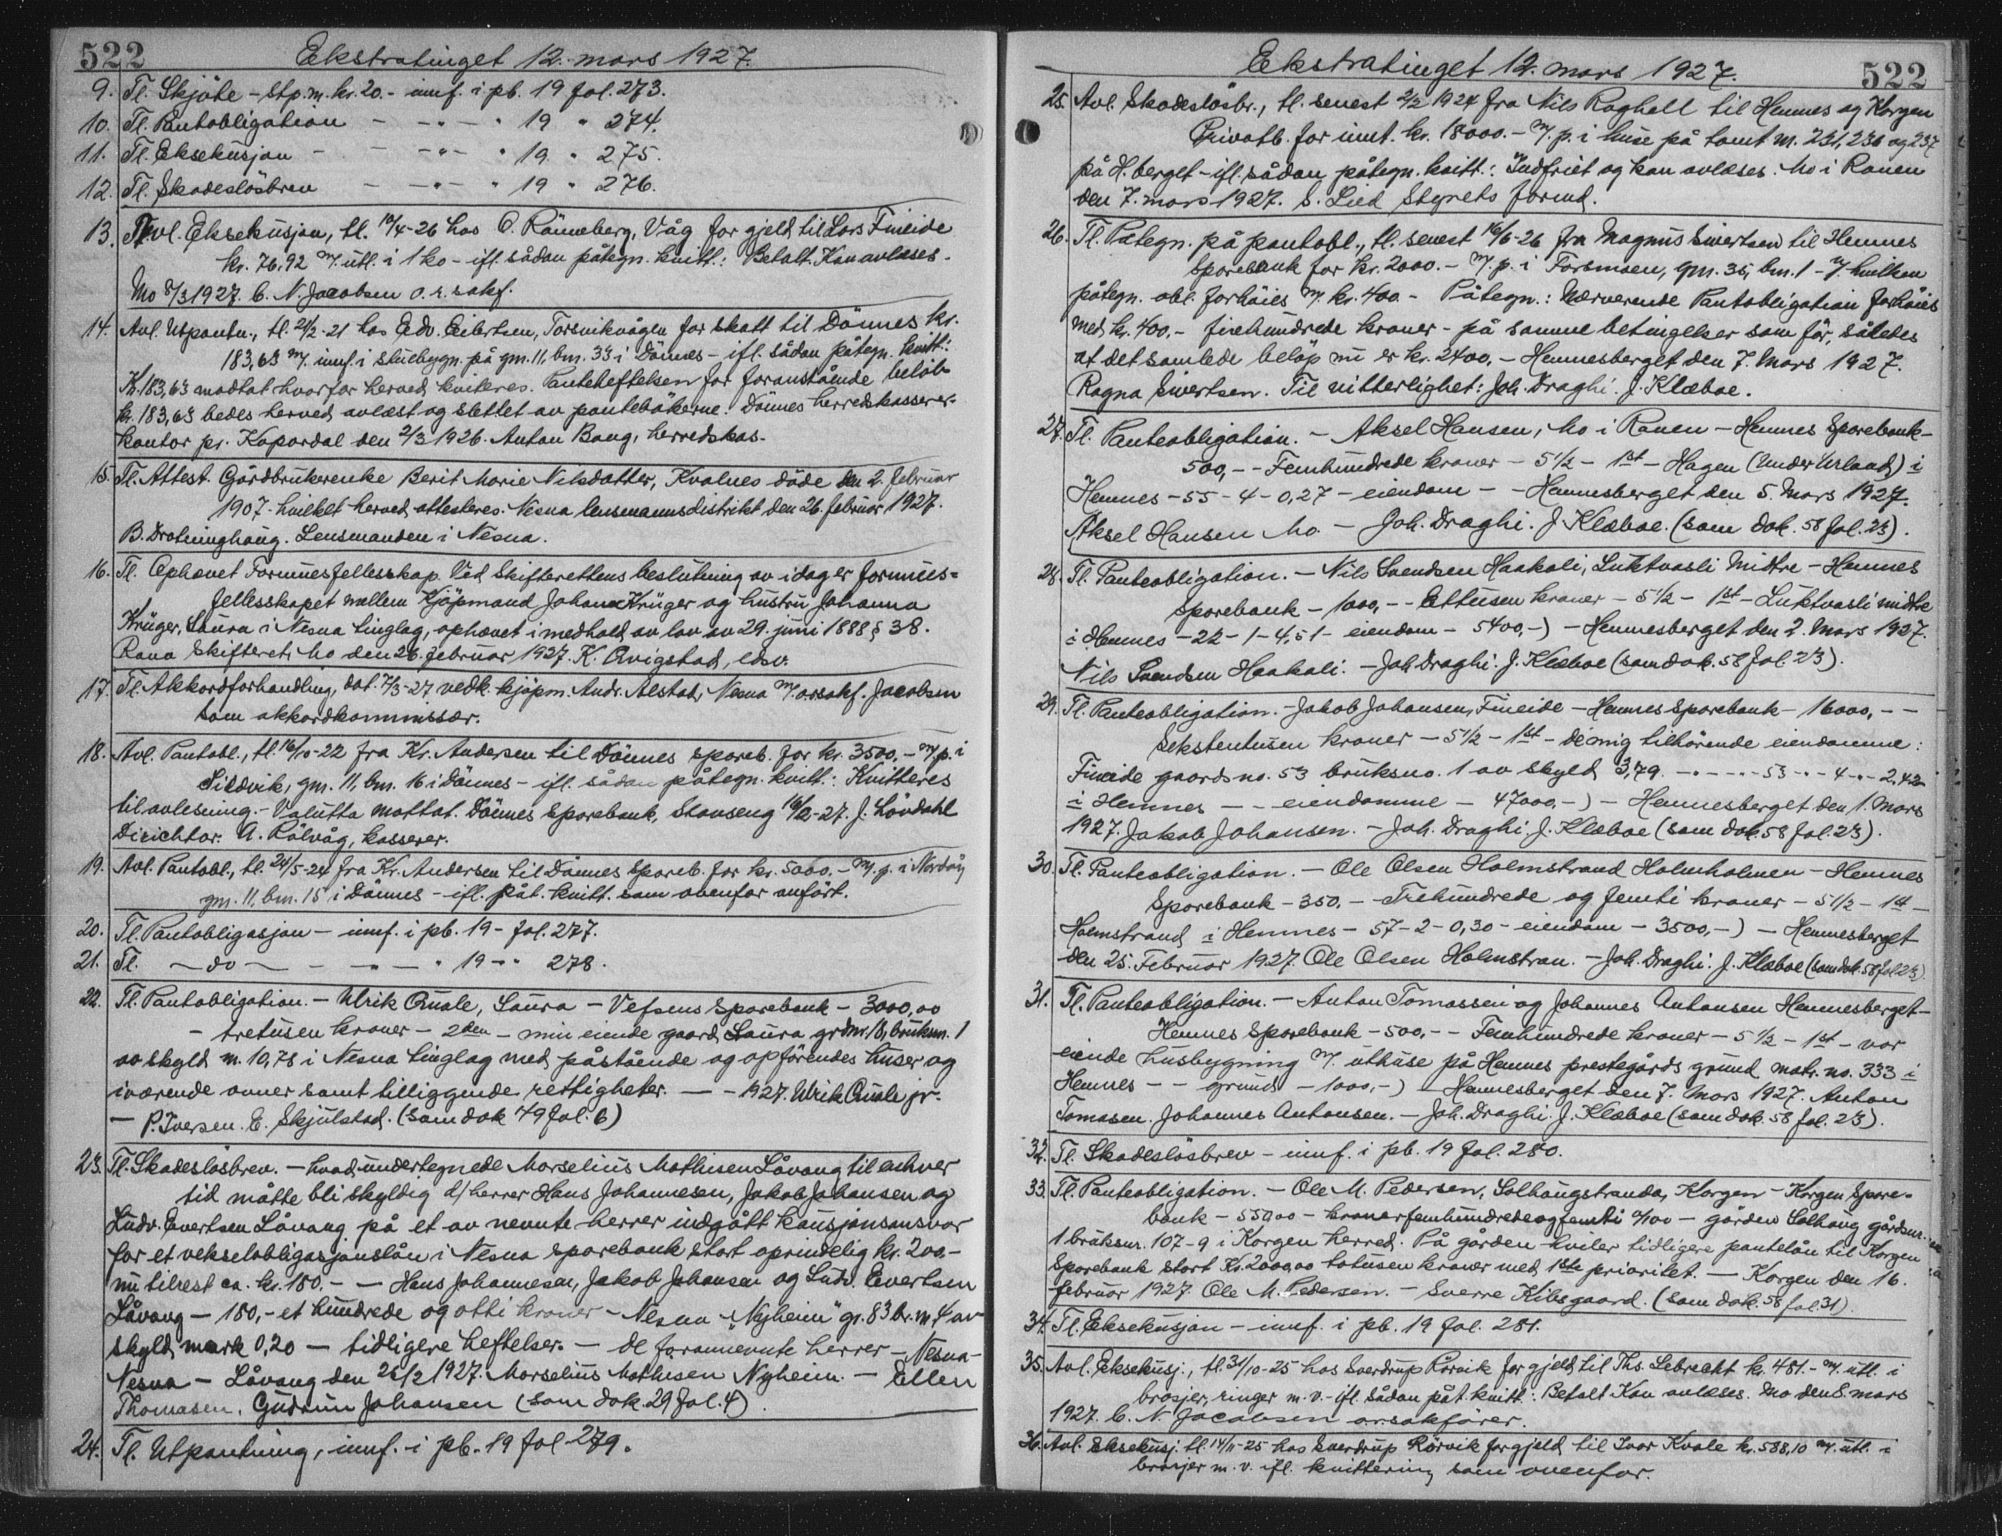 522
Ekstratinget 12. mars 1927.
9. Tl. Skjöte – Stp. m. kr. 20. – innf. i pb. 19 fol. 273.
10. Tl. Pantobligation – – „ – „ 19 „ 274.
11. Tl. Eksekusjon – – – „ – „ 19 „ 275.
12. Tl. Skadeslösbrev – – „ – „ 19 „ 276.
13. Avl. Eksekusjon, tl. 19/4-26 hos O. Rönneberg, Våg for gjeld til Lars Fineide
kr. 76,92 m/. utl. i 1 ko – ifl. sådan påtegn. kvitt.: Betalt. Kan avlæses.
Mo 8/3 1927. C. N. Jacobsen o.r.sakf.
14. Avl. Utpantn., tl. 21/2-21 hos Edv. Eibertsen, Torsvikvågen for skatt til Dönnes kr.
183,63 m/. innf. i stuebygn. på gnr. 11, bnr. 33 i Dönnes – ifl. sådan påtegn. kvitt.:
Kr. 183,63 modtat hvorfor herved kviteres. Panteheftelsen for foranstående beløb
kr. 183,63 bedes herved avlæst og slettet av pantebökerne. Dönnes herredskasserer-
kontor pr. Kopardal den 2/3 1926. Anton Bang, herredskas.
15. Tl. Attest. Gårdbrukerenke Berit Marie Nilsdatter, Kvalnes döde den 2. februar
1907. hvilket herved attesteres. Nesna lensmannsdistrikt den 26. februar 1927.
B. Drotninghaug. Lensmanden i Nesna.
16. Tl. Ophævet Formuesfellesskap. Ved Skifterettens beslutning av idag er formues-
fellesskapet mellem Kjöpmand Johan Krüger og hustru Johanna
Krüger, Saura i Nesna tinglag, ophævet i medhold av lov av 29. juni 1888 § 38.
Rana Skifteret, Mo den 26. februar 1927. K. Qvigstad, edsv.
17. Tl. Akkordforhandling, dat. 7/3-27 vedk. kjöpm. Andr. Alstad, Nesna m/. o.r.sakf. Jacobsen
som akkordkommissær.
18. Avl. Pantobl., tl. 16/10-22 fra Kr. Andersen til Dönnes spareb. for kr. 3500, – m/. p. i
Sildvik, gnr. 11, bnr. 16 i Dönnes – ifl. sådan påtegn. kvitt.: Kvitteres
til avlesning. – Valutta mottat. Dönnes Sparebank, Stavseng 16/2-27. J. Lövdahl
Dirichtör. A. Rölvåg, kasserer.
19. Avl. Pantobl., tl. 24/5-24 fra Kr. Andersen til Dönnes Spareb. for kr. 5000. – m/. p. i Nordvik
gnr. 11, bnr. 15 i Dönnes – ifl. påt. kvitt. som ovenfor anfört.
20. Tl. Pantobligasjon – innf. i pb. 19 – fol. 277.
21. Tl. – do – – „ – „ 19 – „ 278.
22. Tl. Pantobligation. – Ulrik Quale, Saura – Vefsens Sparebank – 3000,00
– tretusen kroner – 2den – min eiende gaard Saura, grdnr. 18, bruksnr. 1
av skyld m. 10,78 i Nesna tinglag med påstående og opförendes huser og
iværende ovner samt tilliggende rettigheter. – – 1927. Ulrik Quale jr.
– P. Iversen. E. Skjulstad. (som dok 79 fol. 6)
23. Tl. Skadeslösbrev. – hvad undertegnede Marselius Mathisen Låvang til enhver
tid måtte bli skyldig d/ herrer Hans Johannesen, Jakob Johansen og
Ludv. Evertsen Låvang på et av nevnte herrer indgått kausjonsansvar
for et vekselobligasjonslån i Nesna Sparebank stort oprindelig kr. 200.–
nu tilrest ca. kr. 180. – – Hans Johannesen, Jakob Johansen og Ludv. Evertsen
Låvang – 180,– et hundrede og otti kroner – Nesna „Nyheim“ gr. 83 br. nr. 4 av
skyld mark 0,20 – tidligere heftelser. – de forannevnte herrer – Nesna –
Nesna – Låvang den 26/2 1927. Marselius Mathisen Nyheim. – Ellen
Thomasen. Gudrun Johansen (som dok. 29 fol. 4)
24. Tl. Utpantning, innf. i pb. 19 fol 279.
Ekstratinget 12. mars 1927.
522
25. Avl. Skadeslösbr., tl. senest 2/2 1924 fra Nils Roghell til Hemnes og Korgen
Privatb. for innt. kr. 18000. – m/. p. i huse på tomt nr. 231, 236 og 237
på H.berget – ifl. sådan påtegn. kvitt.: Indfriet og kan avlæses. Mo i Ranen
den 7. mars 1927. S. Lied Styrets formd.
26. Tl. Påtegn. på pantobl., tl. senest 16/6-26 fra Magnus Sivertsen til Hemnes
Sparebank for kr. 2000. – m/. p. i Forsmoen, gnr. 35, bnr. 1 – v/. hvilken
påtegn. obl. forhöies m/. kr. 400 – Påtegn.: Nærverende Pantobligation forhöies
med kr. 400.– firehundrede kroner – på samme betingelser som för, således
at det samlede belöp nu er kr. 2400. – Hemnesberget den 7. Mars 1927.
Ragna Sivertsen. Til vitterlighet: Joh. Draghi. J. Klæboe.
27. Tl. Panteobligation. – Aksel Hansen, Mo i Ranen – Hemnes Sparebank –
500, – – Femhundrede kroner – 5 1/2 – 1st – Hagen (under Urland) i
Hemnes – 55 – 4 – 0,27 – eiendom – – Hemnesberget den 5. Mars 1927.
Aksel Hansen Mo. – Joh. Draghi. J. Klæboe. (som dok. 58 fol. 23).
28. Tl. Panteobligation. – Nils Svendsen Haakali, Luktvasli Midtre – Hemnes
Sparebank – 1000, – – Ettusen kroner – 5 1/2 – 1st – Luktvasli midtre
i Hemnes – 22 – 1 – 4,51 – eiendom – 5400, –) – Hemnesberget den 2. Mars 1927.
Nils Svendsen Haakali. – Joh. Draghi. J. Klæboe (som dok. 58 fol. 23).
29. Tl. Panteobligation. – Jakob Johansen, Fineide – Hemnes Sparebank – 16000, – –
Sekstentusen kroner – 5 1/2 – 1st – de mig tilhörende eiendomme:
Fineide gaardsno. 53 bruksno. 1 av skyld 3,79. – „ – „ – 53 – „ – 4 – „ – 2.42
i Hemnes – – eiendomme – 47000, –) – Hemnesberget den 1. Mars
1927. Jakob Johansen. – Joh. Draghi. J. Klæboe (som dok. 58 fol. 23).
30. Tl. Panteobligation. – Ole Olsen Holmstrand Holmholmen – Hemnes
Sparebank – 350. – Trehundrede og femti kroner – 5 1/2 – 1st –
Holmstrand i Hemnes – 57 – 2 – 0,30 – eiendom – 3500, –) – Hemnesberget
den 25. Februar 1927. Ole Olsen Holmstran. – Joh. Draghi. J. Klæboe (som dok. 58 fol 23)
31. Tl. Panteobligation. – Anton Tomassen og Johannes Antonsen Hemnesberget –
Hemnes Sparebank – 500, – – Femhundrede kroner – 5 1/2 – 1st – vor
eiende husbygning m/. uthuse på Hemnes prestegårds grund matr. no. 333 i
Hemnes – – grund – 1000, –) – Hemnesberget den 7. Mars 1927. Anton
Tomasen. Johannes Antonsen. – Joh. Draghi. J. Klæboe (som dok. 58 fol. 23).
32. Tl. Skadeslösbrev – innf. i pb. 19 fol. 280.
33. Tl. Panteobligation. – Ole M. Pedersen, Solhaugstranda, Korgen – Korgen Spare-
bank – 550,00 – kroner femhundredeogfemti 0/100 – gården Solhaug gårdsnr.
1. bruksnr. 107 – 9 i Korgen herred. På garden hviler tidligere pantelån til Korgen
Sparebank stort Kr. 2000,00 totusen kroner med 1ste prioritet. – Korgen den 16.
februar 1927. Ole M. Pedersen. – Sverre Kibsgaard. (som dok. 58 fol. 31).
34. Tl. Eksekusjon – innf. i pb. 19 fol. 281.
35. Avl. Eksekusj., tl. 31/10-25 hos Sverdrup Rörvik for gjeld til Ths. Lebrecht kr. 481. – m/. utl. i
brosjer, ringer m. v. – ifl. sådan påt. kvitt.: Betalt Kan avlæses. Mo den 8. mars
1927. C. N. Jacobsen orsakförer.
36. Avl. Eksekusj. tl. 14/11-25 hos Sverdrup Rörvik for gjeld til Ivar Kvale kr. 588,10 m/. utl. i
brosjer m. v. ifl. kvittering som ovenfor.